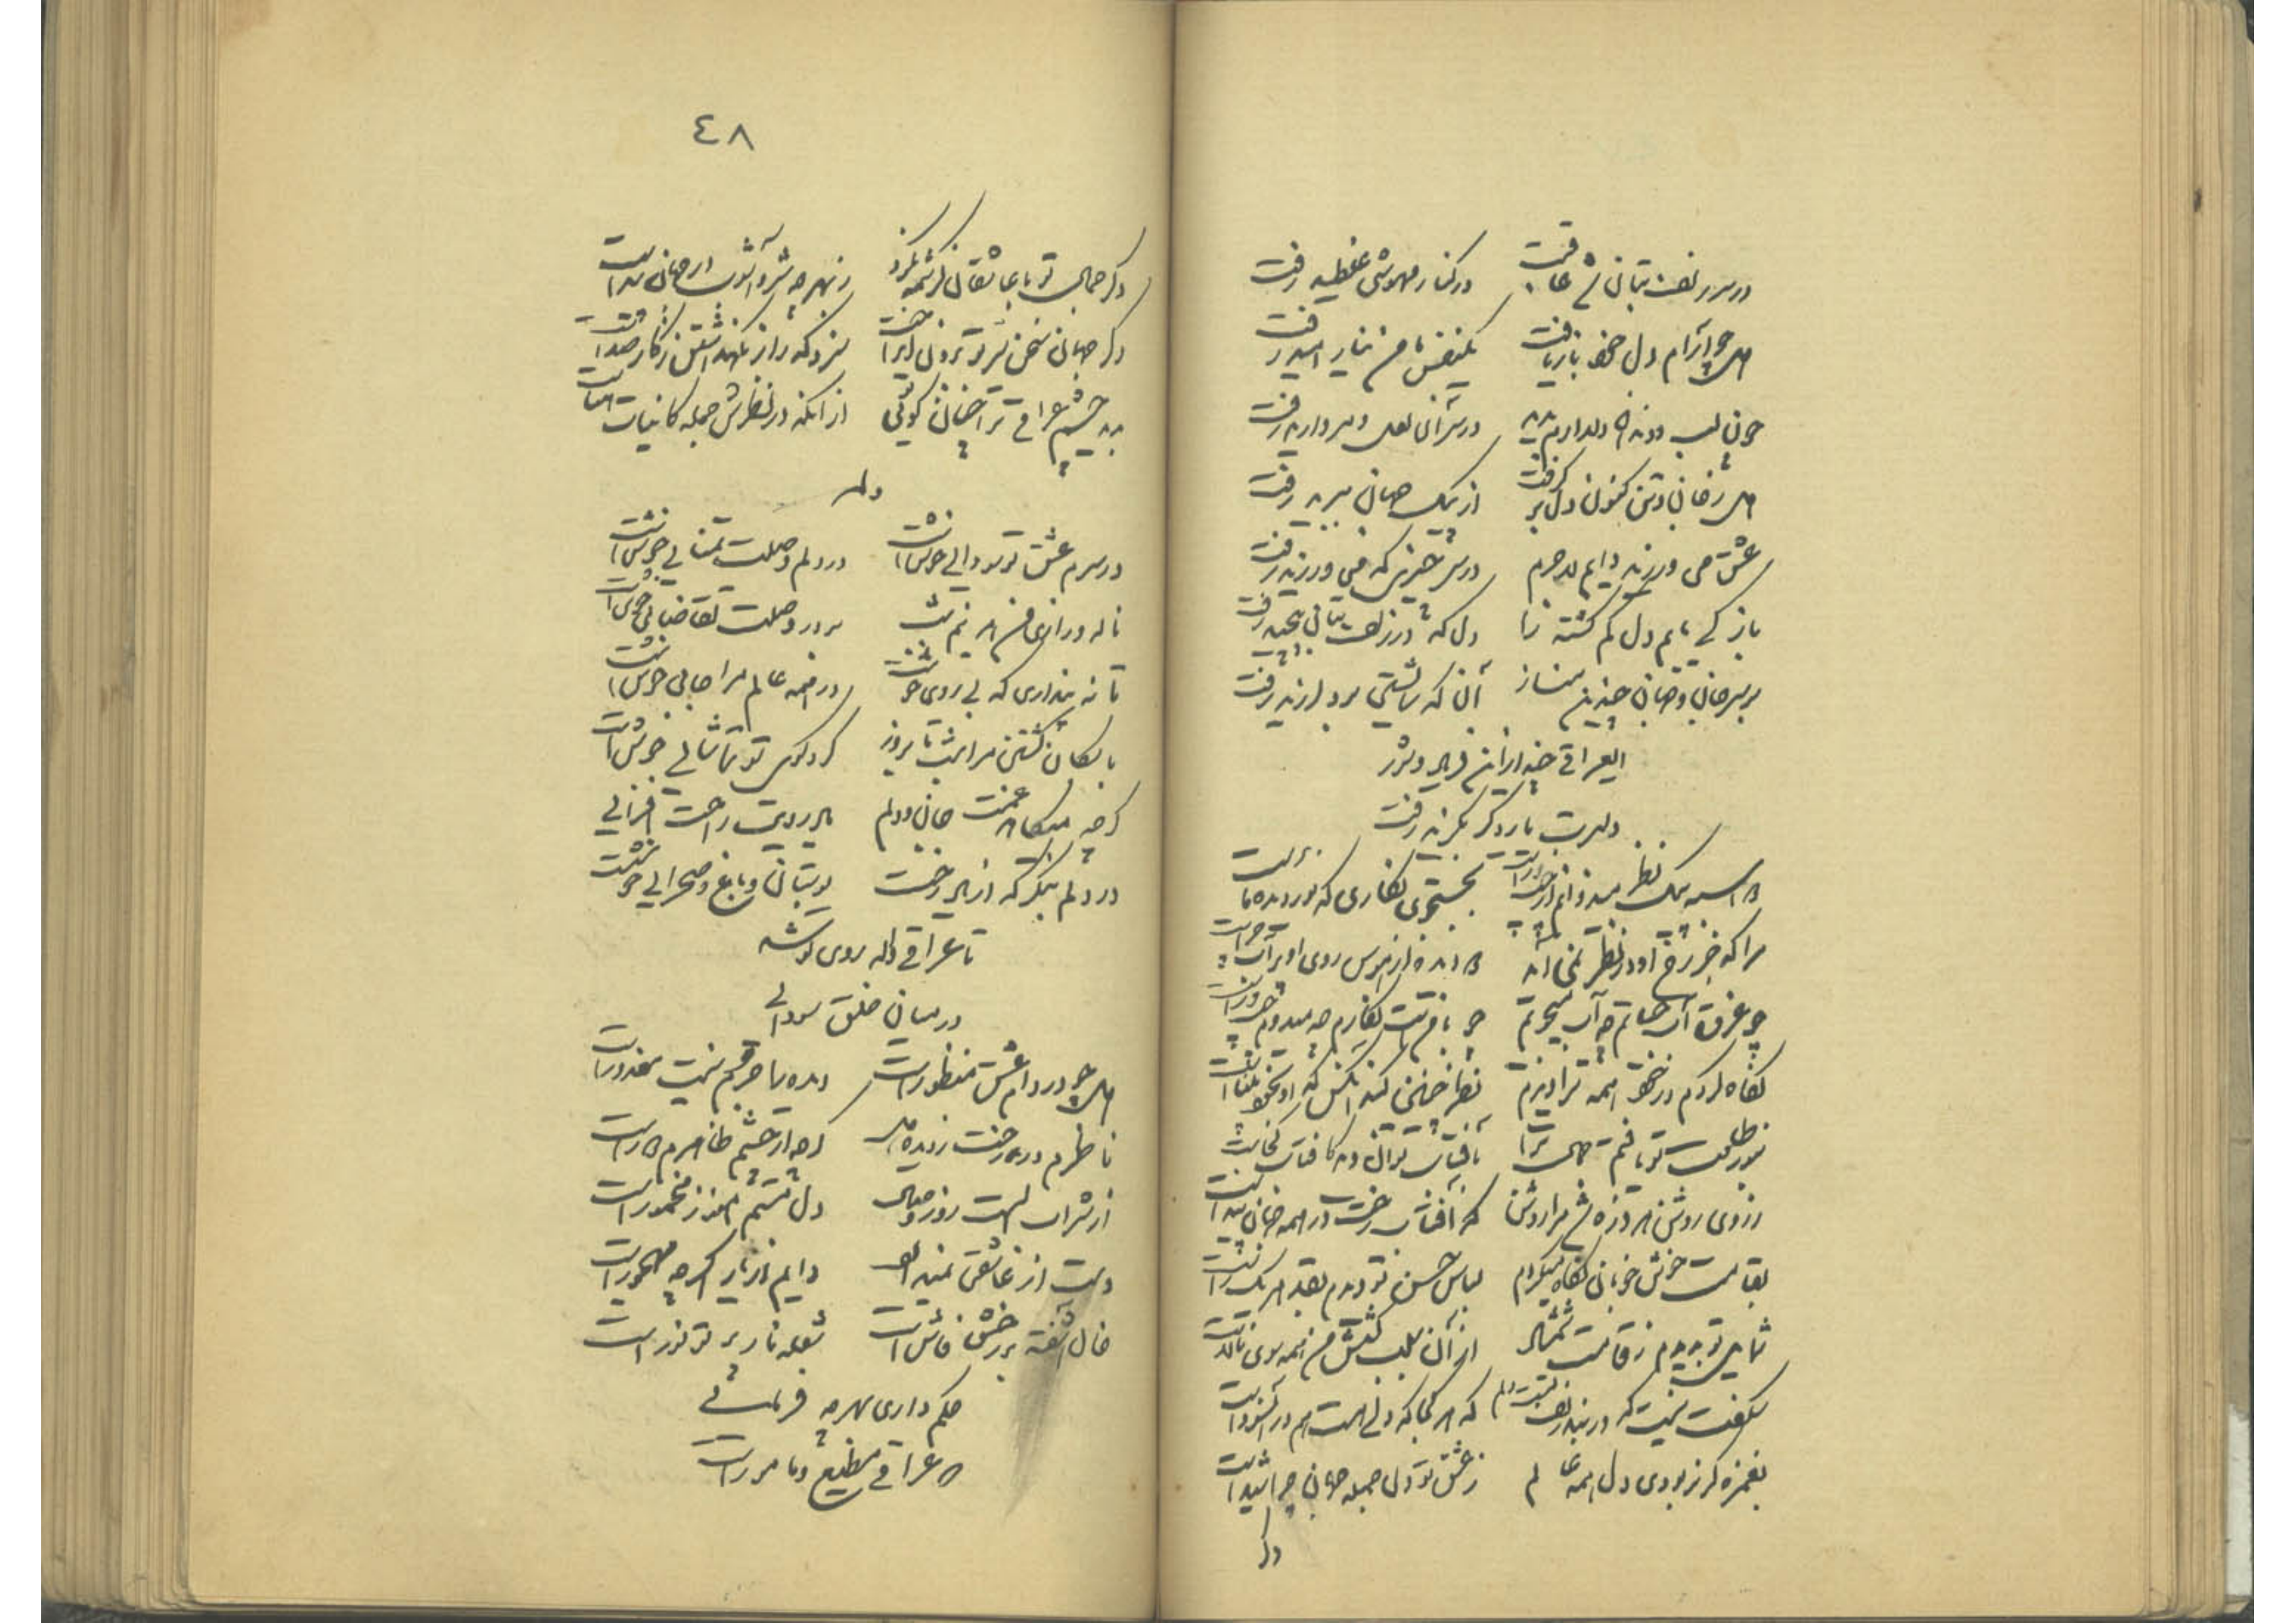 در سر زلف بتان شد عاقبت در کنار مهوشی غلطید رفت
چون آرام دل خود بازیافت یکنفس با من نیارامید رفت
چون لب و دندان دلدارم بدید در سر آن لعل و مروارید رفت
جان و تن کنون دل بر گرفت از بد و نیک جهان ببرید رفت
عشق می ورزید دایم لاجرم در سر چیزی که می ورزید رفت
باز کی یابم دل گم گشته را دل که در زلف بتان پیچید رفت
بر سر جان و جهان چندین مناز آن که شایستی بدو لرزید رفت
ای عراقی چند ازین فریاد و شور
دلبرت یار دگر بگزید رفت
یک نظر میدوانم از چپ و راست بجستجوی نگاری که نور دیده ماست
مرا که جز رخ او در نظر نمی آید دو دیده از هوس روی او پرآب چراست
چو غرق آب حیاتم چه آب میجویم چو با منست نگارم چه میدوم چپ و راست
نگاه کردم در خود همه ترا دیدم نظر چنین کند آنکس که او بخود بیناست
بنور طلعت تو یافتم ترا بآفتاب توان دید کآفتاب کجاست
ز روی روشن هر ذره شد مرا روشن که آفتاب رخت در همه جهان پیداست
بقامت خوش خوبان نگاه میکردم لباس حسن تو دیدم بقد هر یک راست
شمایل تو بدیدم ز قامت شمشاد از آن سبب کشش من همه سوی بالاست
شگفت نیست که در بند زلف تست دلم که هر کجا که دلی هست هم در آن سوداست
بغمزه گر نربودی دل همه عالم ز عشق تو دل جمله جهان چرا شیداست
وگر
٤٨
وگر جمال تو با عاشقان کرشمه نکرد ز بهر چه شر و آشوب از جهان برخاست
وگر جهان سخن سر تو نگفت سزد که راز نگه داشتن ز کار صداست
ندید چشم عراقی ترا چنان که توئی از آنکه در نظرش جمله کاینات
وله
در سرم عشق تو سودایی خوش است در دلم وصلت تمنایی خوش است
ناله و زاری من هر نیم شب بر در وصلت تقاضایی خوش است
تا نه پنداری که بی روی خوشت در همه عالم مرا جایی خوش است
با سگان گشتن مرا شب تا بروز گرد کوی تو تماشایی خوش است
گرچه میکاهد غمت جان و دلم یاد رویت راحت افزایی
در دلم بنگر که از یاد رخت بوستان و باغ و صحرایی خوشست
تا عراقی واله روی تو شد
در میان خلق سودایی
در دام عشق منظور است دیده یا خرقم نیست معذور است
ناظرم در رخت ز دیده دل گرچه از چشم ظاهرم دور است
از شراب الست روز وصال دل مستم هنوز مخمور است
دست از عاشقی نمیدارد دایم از یار اگرچه مهجور است
حال آشفته بر رخش فاش است شعله نار پرتو نور است
حکم داری بهر چه فرمائی
که عراقی مطیع و مامور است